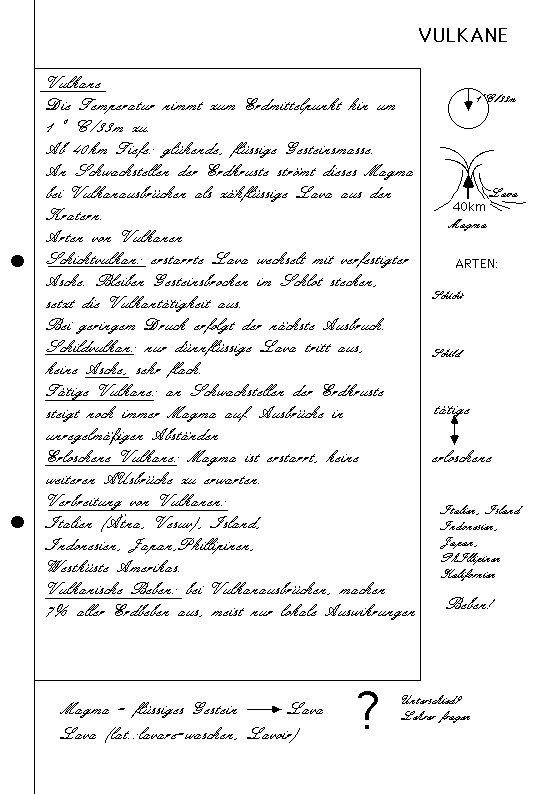 VULKANE
Vulkane
Die Temperatur nimmt zum Erdmittelpunkt hin um
1 ° C/33m zu.
Ab 40km Tiefe: glühende, flüssige Gesteinsmasse.
An Schwachstellen der Erdkruste strömt dieses Magma
bei Vulkanausbrüchen als zähflüssige Lava aus den
Kratern.
Arten von Vulkanen
Schichtvulkan: erstarrte Lava wechselt mit verfestigter
Asche. Bleiben Gesteinsbrocken im Schlot stecken,
setzt die Vulkantätigkeit aus.
Bei geringem Druck erfolgt der nächste Ausbruch.
Schildvulkan: nur dünnflüssige Lava tritt aus,
keine Asche, sehr flach.
Tätige Vulkane: an Schwachstellen der Erdkruste
steigt noch immer Magma auf. Ausbrüche in
unregelmäßigen Abständen
Erloschene Vulkane: Magma ist erstarrt, keine
weiteren AUsbrüche zu erwarten.
Verbreitung von Vulkanen:
Italien (Ätna, Vesuv), Island,
Indonesien, Japan,Phillipinen,
Westküste Amerikas.
Vulkanische Beben: bei Vulkanausbrüchen, machen
7% aller Erdbeben aus, meist nur lokale Auswikrungen
1°C/33m
Lava
40km
Magma
ARTEN:
Schicht
Schild
tätige
erloschene
Italien, Island
Indonesien,
Japan,
PhIllipinen
Kalifornien
Beben!
Magma = flüssiges Gestein → Lava
Lava (lat.:lavare=waschen, Lavoir)
?
Unterschied?
Lehrer fragen